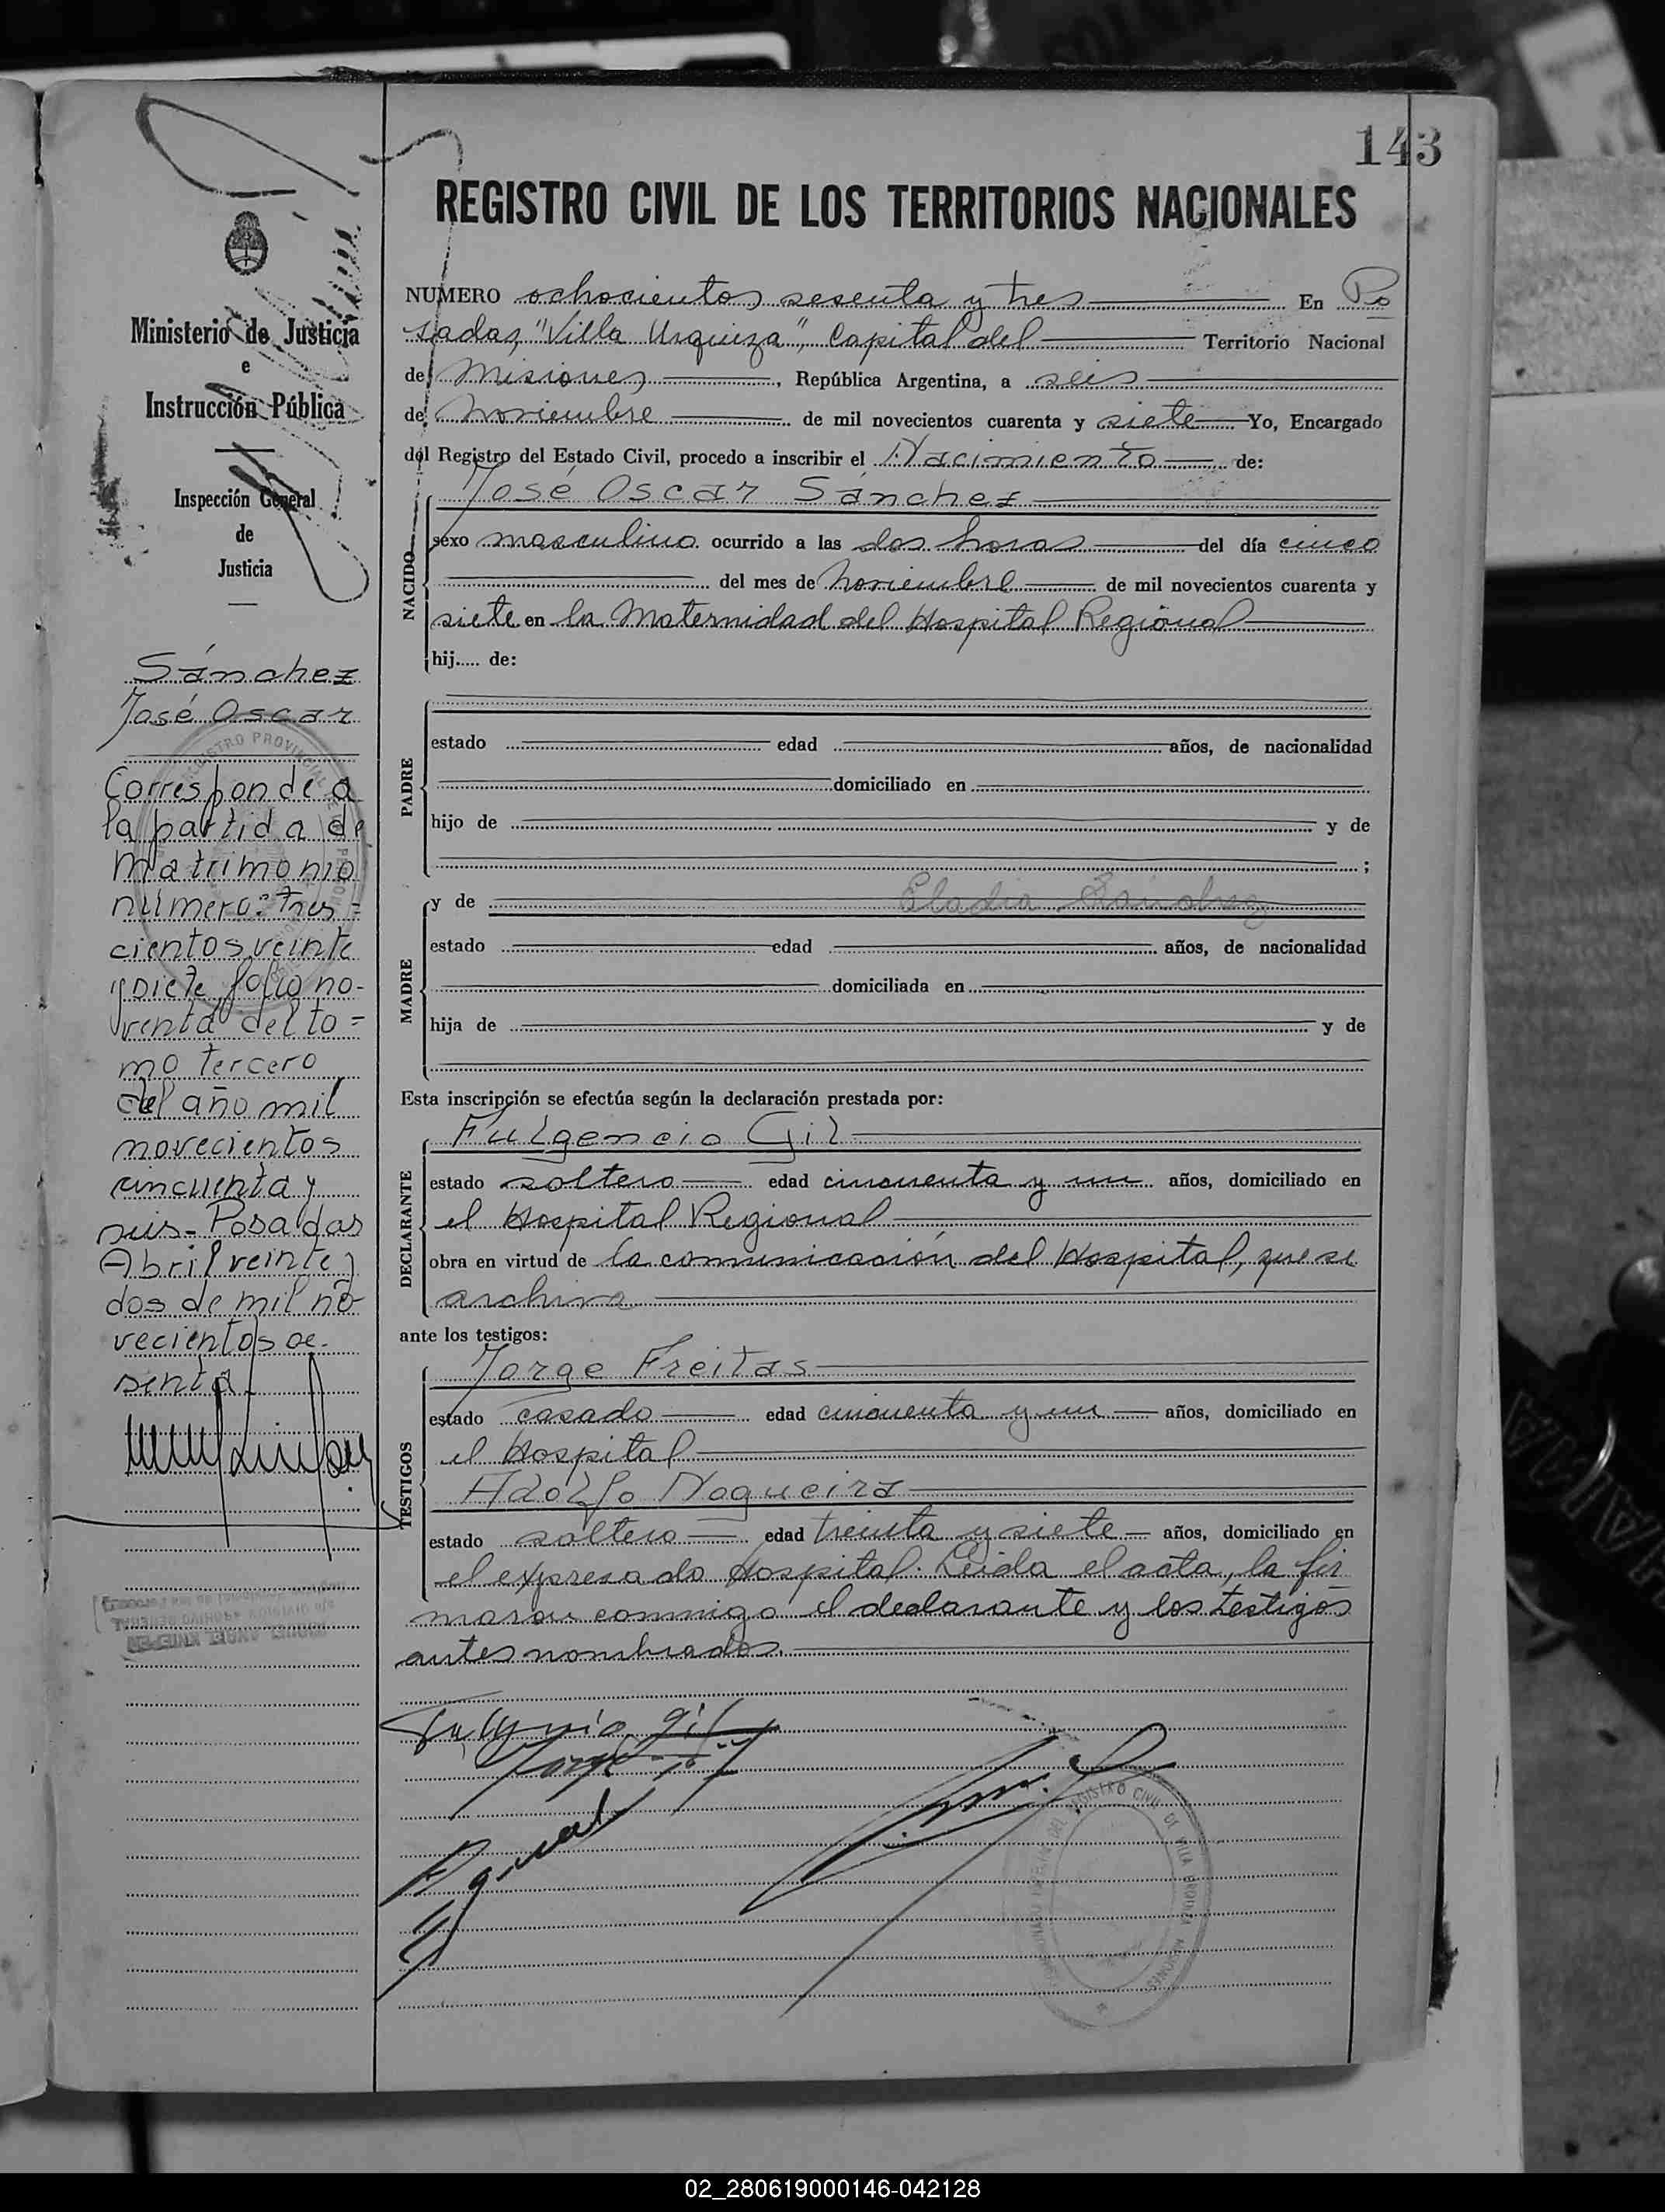 143
REGISTRO CIVIL DE LOS TERRITORIOS NACIONALES
Ministerio de Justicia
e
Instrucción Pública
Inspección General
de
Justicia
Sánchez
José Oscar
Corresponde a
la partida de
matrimonio
número: tres=
cientos veinte
y siete, folio no-
venta del to=
mo tercero
del año mil
novecientos
cincuenta y
seis- Posadas
Abril veinte y
dos de mil no-
vecientos se-
senta.
NUMERO ochocientos sesenta y tres En Po
sadas, "Villa Urquiza", Capital del Territorio Nacional
de Misiones, República Argentina, a seis
de noviembre de mil novecientos cuarenta y siete Yo, Encargado
del Registro del Estado Civil, procedo a inscribir el Nacimiento de:
NACIDO
José Oscar Sánchez
sexo masculino ocurrido a las dos horas del día cinco
del mes de noviembre de mil novecientos cuarenta y
siete en la Maternidad del Hospital Regional
hij..... de:
PADRE
estado edad años, de nacionalidad
domiciliado en
hijo de y de
;
MADRE
y de Eladia Sánchez
estado edad años, de nacionalidad
domiciliada en
hija de y de
Esta inscripción se efectúa según la declaración prestada por:
DECLARANTE
Fulgencio Gil
estado soltero edad cincuenta y un años, domiciliado en
el Hospital Regional
obra en virtud de la comunicación del Hospital, que se
archiva
ante los testigos:
TESTIGOS
Jorge Freitas
estado casado edad cincuenta y un años, domiciliado en
el Hospital
Adolfo Nogueira
estado soltero edad treinta y siete años, domiciliado en
el expresado Hospital. Leida el acta, la fir
maron conmigo el declarante y los testigos
antes nombrados.
Fulgencio Gil
REGISTRO CIVIL DE VILLA URQUIZA MISIONES
02_280619000146-042128